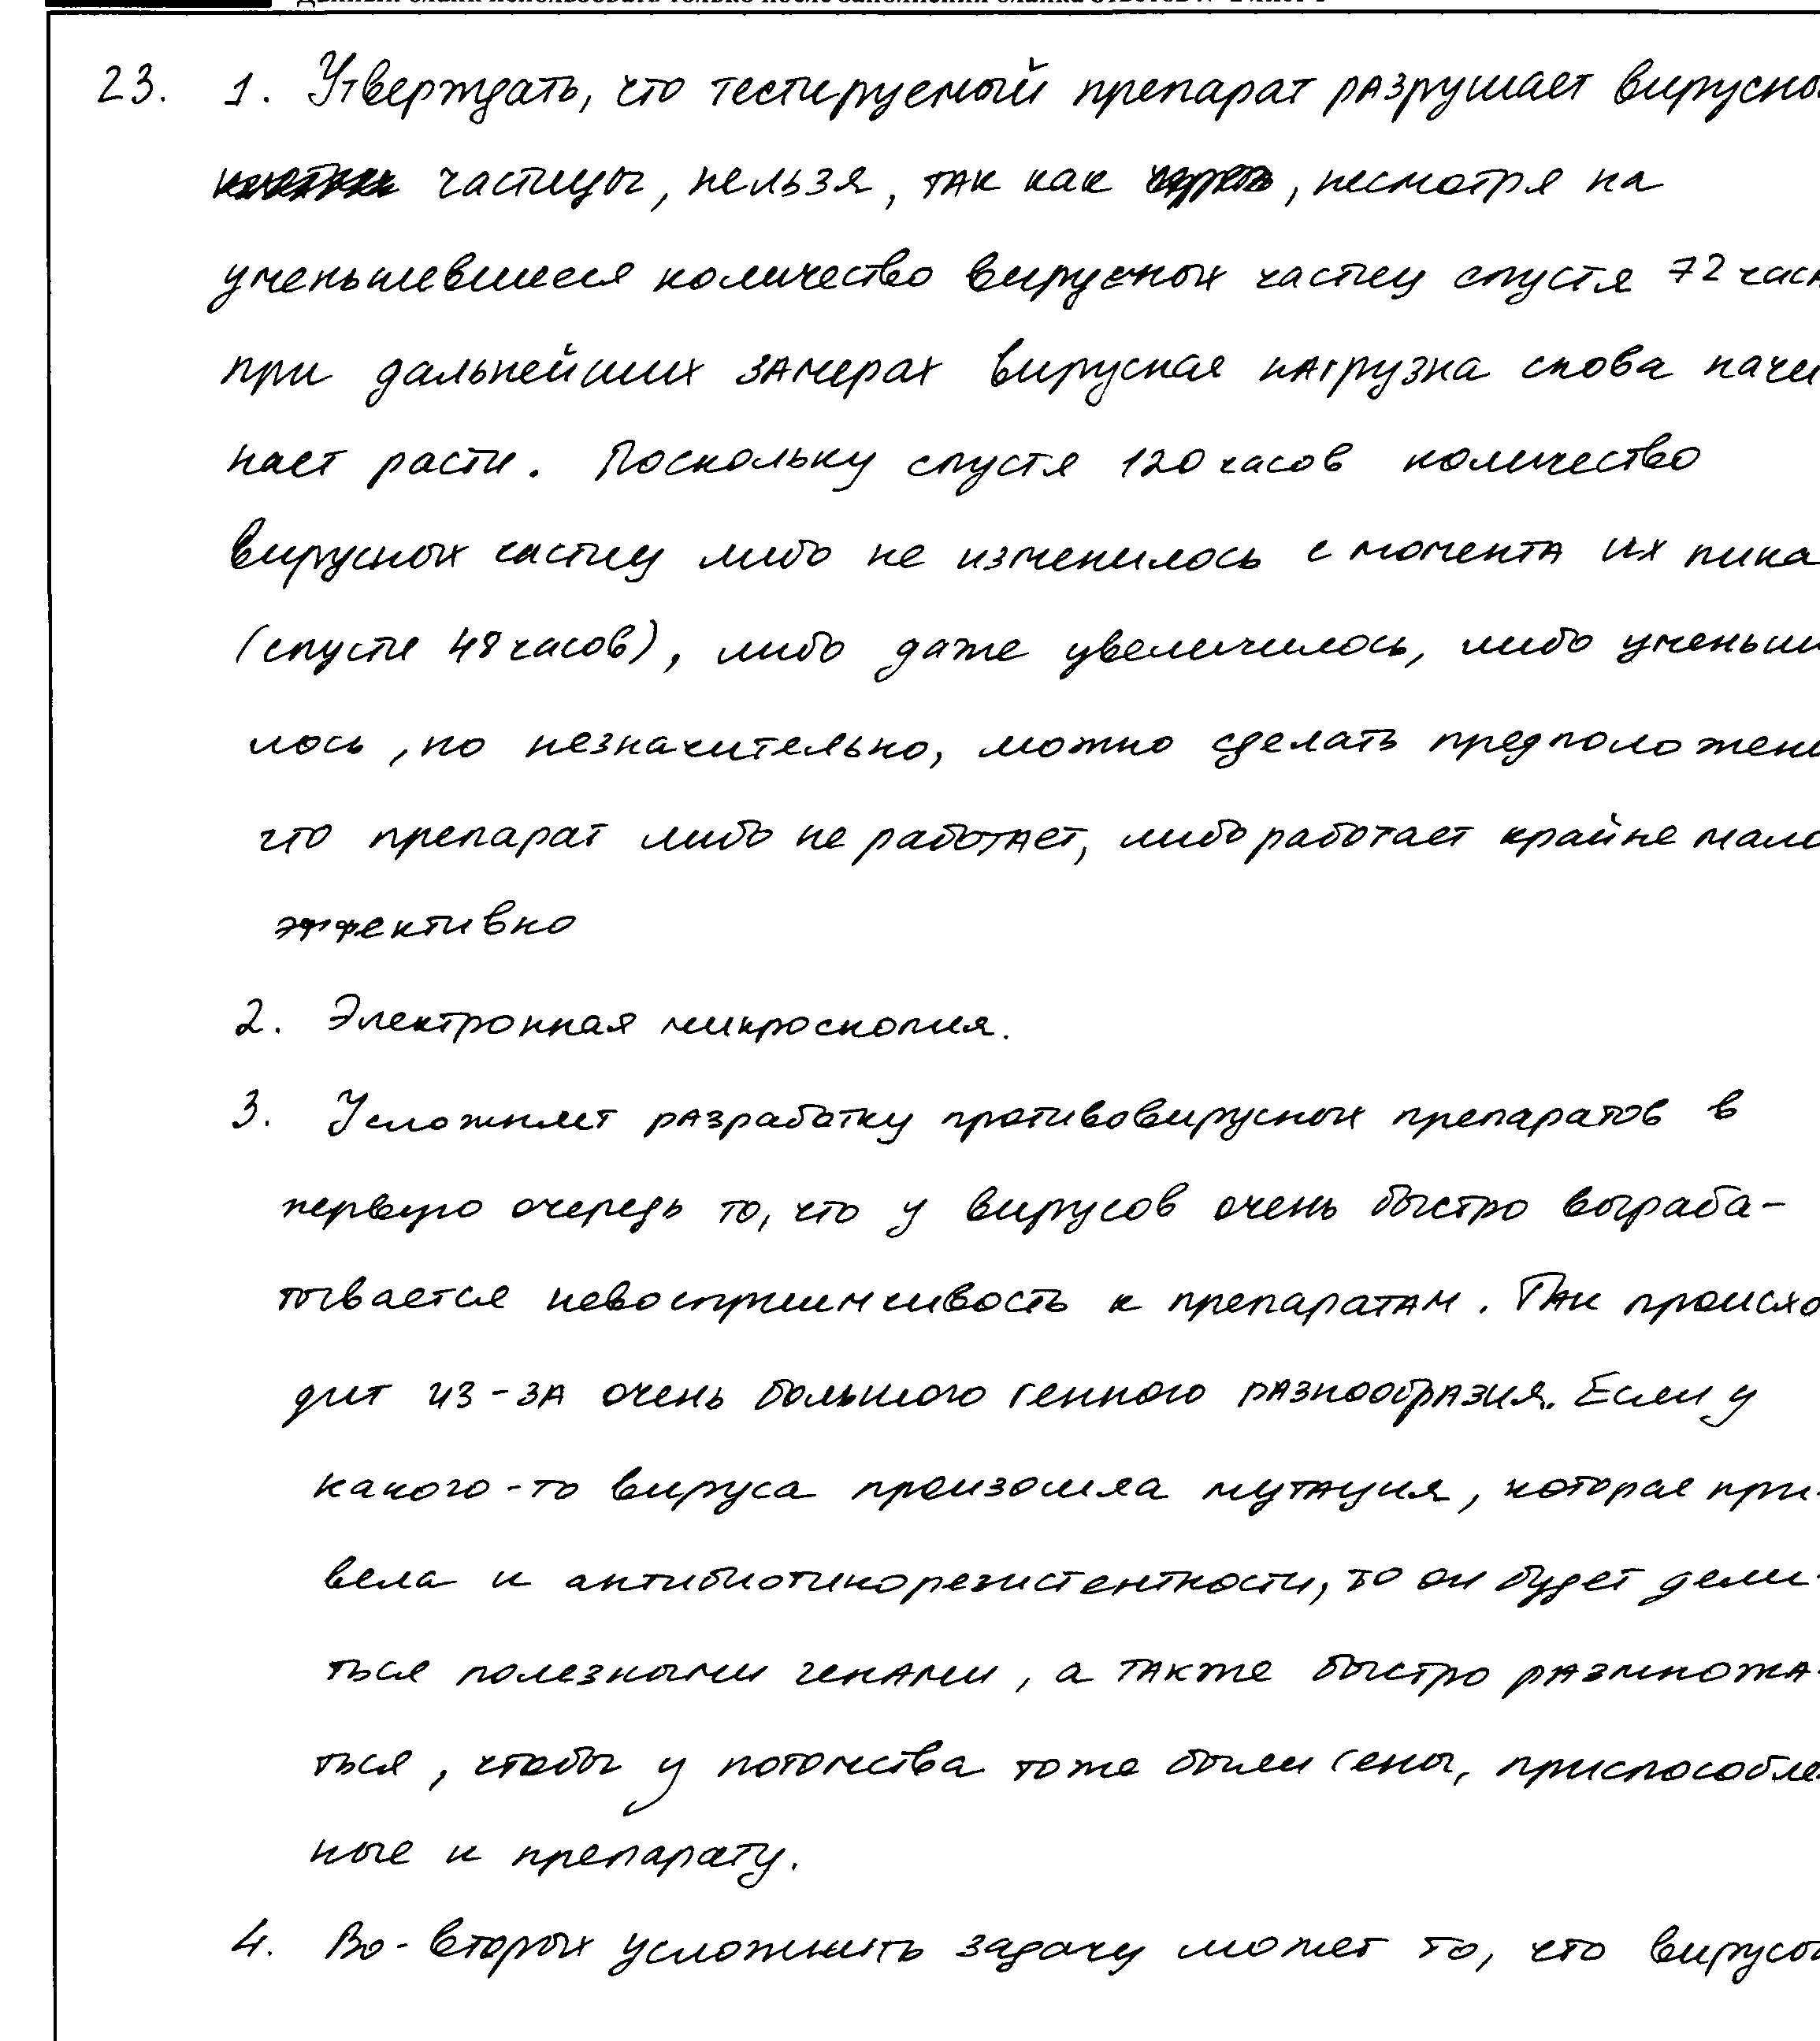 23. 1. Утверждать, что тестируемый препарат разрушает вирусны
частицы, нельзя, так как , несмотря на
уменьшевшееся количество вирусных частиц спустя 72 час
при дальнейших замерах вирусная нагрузка снова начи
нает расти. Поскольку спустя 120 часов количество
вирусных частиц либо не изменилось с момента их пика
(спустя 48 часов), либо даже увеличилось, либо уменьши
лось, но незначительно, можно сделать предположени
что препарат либо не работает, либо работает крайне мало
эффективно
2. Электронная микроскопия.
3. Усложняет разработку противовирусных препаратов в
первую очередь то, что у вирусов очень быстро выраба-
тывается невосприимчивость к препаратам. Так происхо
дит из-за очень большого генного разнообразия. Если у
какого-то вируса произошла мутация, которая при-
вела к антибиотикорезистентности, то он будет дели-
ться полезными генами, а также быстро размножа-
ться, чтобы у потомства тоже были гены, приспособле
ные к препарату.
4. Во-вторых усложнить задачу может то, что вирусы